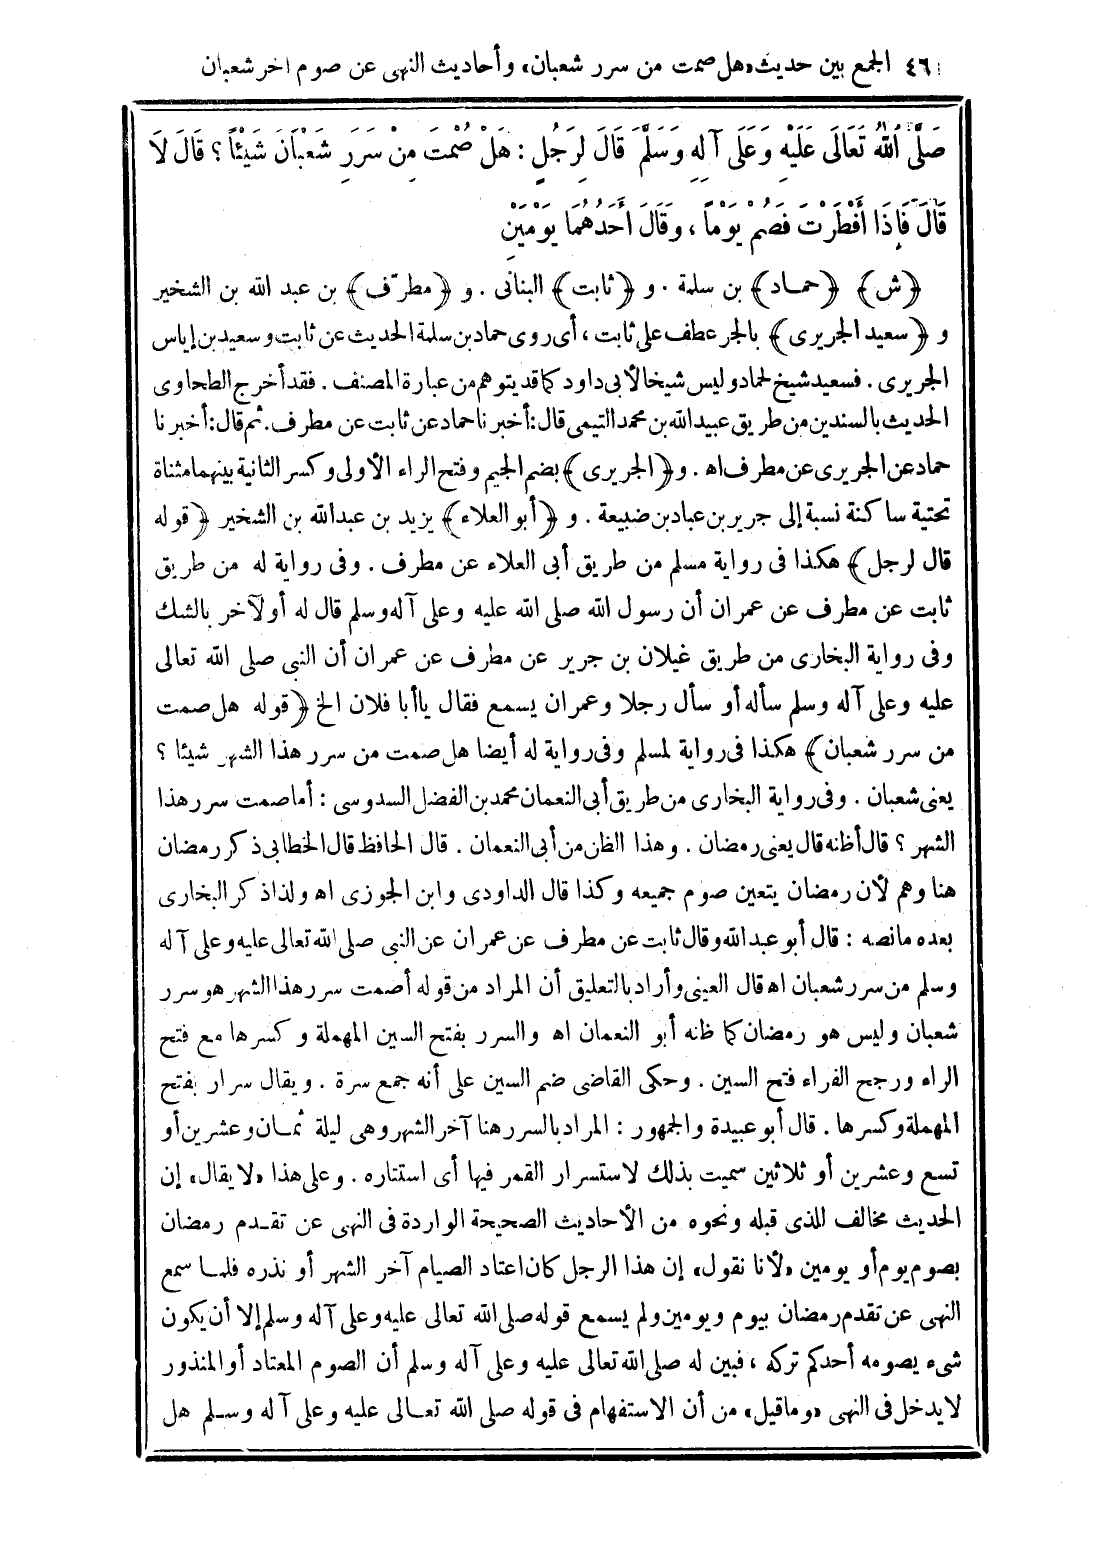 ٤٦ الجمع بين حديث «هل صمت من سرر شعبان» وأحاديث النهى عن صوم آخر شعبان
صَلَّى اللهُ تَعَالَى عَلَيْهِ وَعَلَى آلِهِ وَسَلَّمَ قَالَ لِرَجُلٍ : هَلْ صُمْتَ مِنْ سَرَرِ شَعْبَانَ شَيْئًا ؟ قَالَ لَا
قَالَ فَإِذَا أَفْطَرْتَ فَصُمْ يَوْمًا ، وَقَالَ أَحَدُهُمَا يَوْمَيْنِ
﴿ش﴾ ﴿حماد﴾ بن سلمة . و ﴿ثابت﴾ البنانى . و ﴿مطرّف﴾ بن عبد الله بن الشخير
و ﴿سعيد الجريرى﴾ بالجر عطف على ثابت ، أى روى حماد بن سلمة الحديث عن ثابت وسعيد بن إياس
الجريرى . فسعيد شيخ لحماد وليس شيخا لأبى داود كما قد يتوهم من عبارة المصنف . فقد أخرج الطحاوى
الحديث بالسندين من طريق عبيد الله بن محمد التيمى قال: أخبرنا حماد عن ثابت عن مطرف. ثم قال: أخبرنا
حماد عن الجريرى عن مطرف اه . و ﴿الجريرى﴾ بضم الجيم وفتح الراء الأولى وكسر الثانية بينهما مثناة
تحتية ساكنة نسبة إلى جرير بن عباد بن ضبيعة . و ﴿أبو العلاء﴾ يزيد بن عبد الله بن الشخير ﴿قوله
قال لرجل﴾ هكذا فى رواية مسلم من طريق أبى العلاء عن مطرف . وفى رواية له من طريق
ثابت عن مطرف عن عمران أن رسول الله صلى الله عليه وعلى آله وسلم قال له أو لآخر بالشك
وفى رواية البخارى من طريق غيلان بن جرير عن مطرف عن عمران أن النبى صلى الله تعالى
عليه وعلى آله وسلم سأله أو سأل رجلا وعمران يسمع فقال يا أبا فلان الخ ﴿قوله هل صمت
من سرر شعبان﴾ هكذا فى رواية لمسلم وفى رواية له أيضا هل صمت من سرر هذا الشهر شيئا ؟
يعنى شعبان . وفى رواية البخارى من طريق أبى النعمان محمد بن الفضل السدوسى : أما صمت سرر هذا
الشهر ؟ قال أظنه قال يعنى رمضان . وهذا الظن من أبى النعمان . قال الحافظ قال الخطابى ذكر رمضان
هنا وهم لأن رمضان يتعين صوم جميعه وكذا قال الداودى وابن الجوزى اه ولذا ذكر البخارى
بعده مانصه : قال أبو عبد الله وقال ثابت عن مطرف عن عمران عن النبى صلى الله تعالى عليه وعلى آله
وسلم من سرر شعبان اه قال العينى وأراد بالتعليق أن المراد من قوله أصمت سرر هذا الشهر هو سرر
شعبان وليس هو رمضان كما ظنه أبو النعمان اه والسرر بفتح السين المهملة وكسرها مع فتح
الراء ورجح الفراء فتح السين . وحكى القاضى ضم السين على أنه جمع سرة . ويقال سرار بفتح
المهملة وكسرها . قال أبو عبيدة والجمهور : المراد بالسرر هنا آخر الشهر وهى ليلة ثمان وعشرين أو
تسع وعشرين أو ثلاثين سميت بذلك لاستسرار القمر فيها أى استتاره . وعلى هذا «لا يقال» إن
الحديث مخالف للذى قبله ونحوه من الأحاديث الصحيحة الواردة فى النهى عن تقدم رمضان
بصوم يوم أو يومين «لأنا نقول» إن هذا الرجل كان اعتاد الصيام آخر الشهر أو نذره فلما سمع
النهى عن تقدم رمضان بيوم ويومين ولم يسمع قوله صلى الله تعالى عليه وعلى آله وسلم إلا أن يكون
شىء يصومه أحدكم تركه ، فبين له صلى الله تعالى عليه وعلى آله وسلم أن الصوم المعتاد أو المنذور
لا يدخل فى النهى «وما قيل» من أن الاستفهام فى قوله صلى الله تعالى عليه وعلى آله وسلم هل